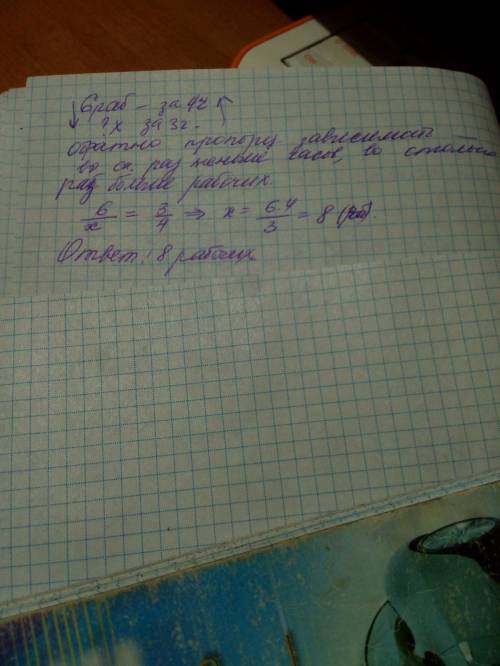 ↓ 6 раб – за 4 ч ↑
? х за 3 ч.
обратно пропорц зависимость
во ск. раз меньше часов, во столько
раз больше рабочих.
6/x = 3/4 ⇒ x = 6·4/3 = 8 (раб).
Ответ: 8 рабочих